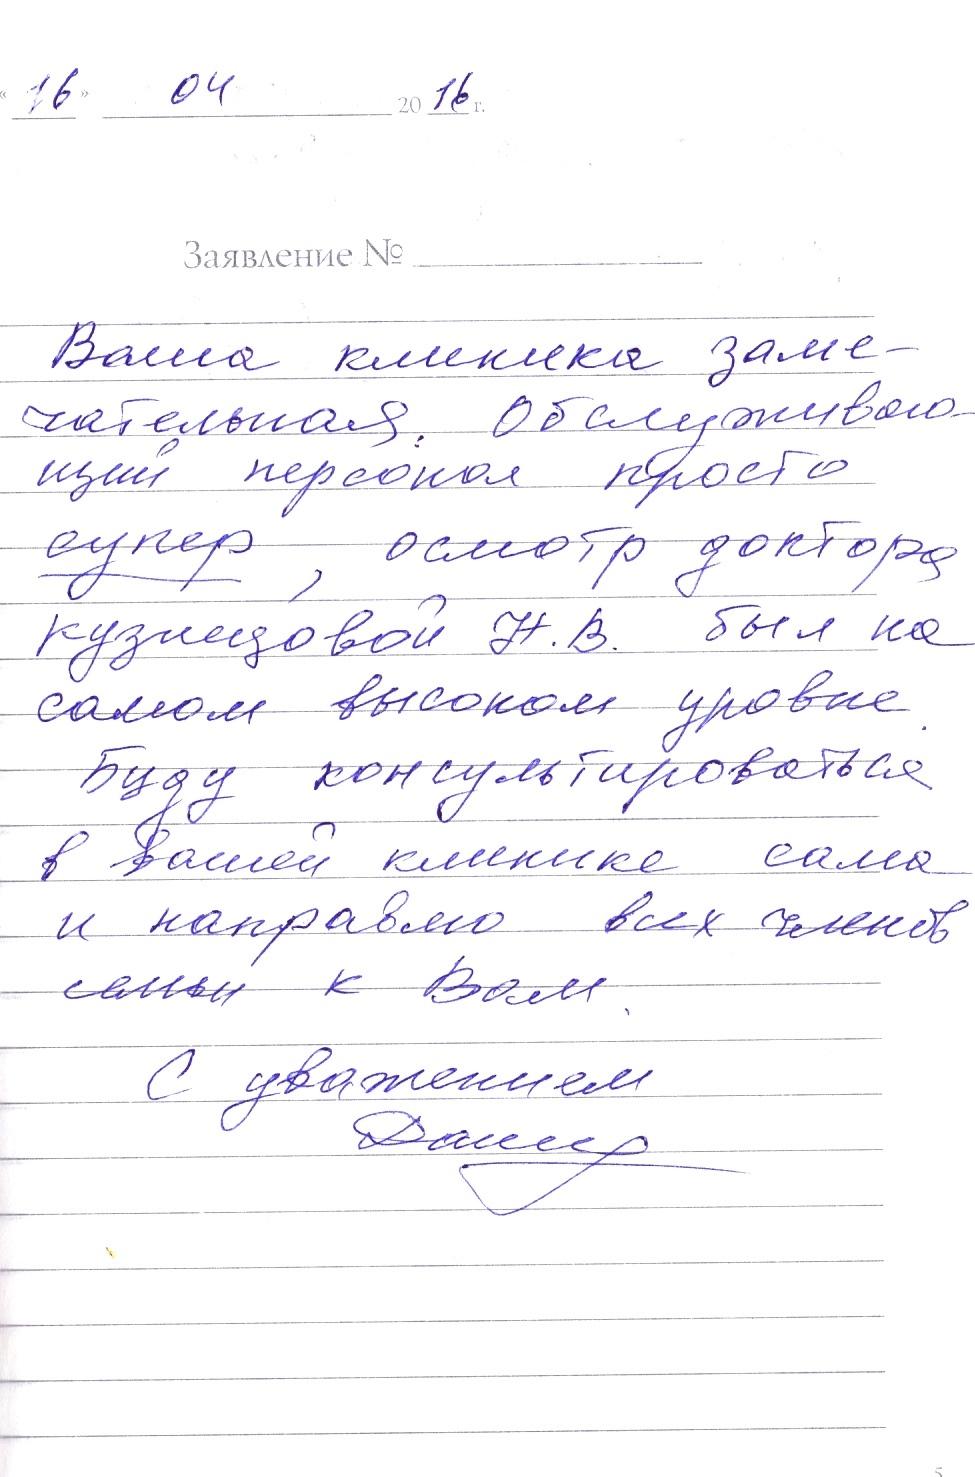 « 16 » 04 2016 г.
Заявление №
Ваша клиника заме-
чательная. Обслуживаю-
щий персонал просто
супер, осмотр доктора
Кузнецовой Н.В. был на
самом высоком уровне.
Буду консультироваться
в Вашей клинике сама
и направлю всех членов
семьи к Вам.
С уважением
5